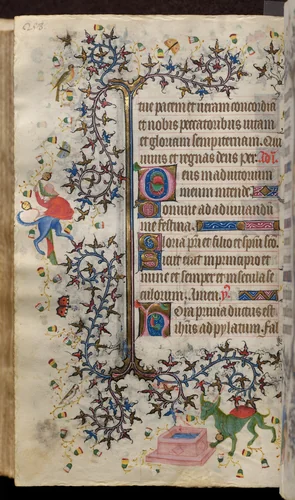 tue pacem et ueram concordia
et nobis peccatoribus uitam
et gloriam sempiternam. Qui
uiuis et regnas deus per.
Deus in adiutorium
meum intende.
Domine ad adiuuandū
me festina.
Gloria pr̄i et filio et spūi sco
Sicut erat in principio et
nunc et semper et in secula se
culorum. Amen. ỹ.
Hora prima ductus est
ihūs ad pylatum. fal